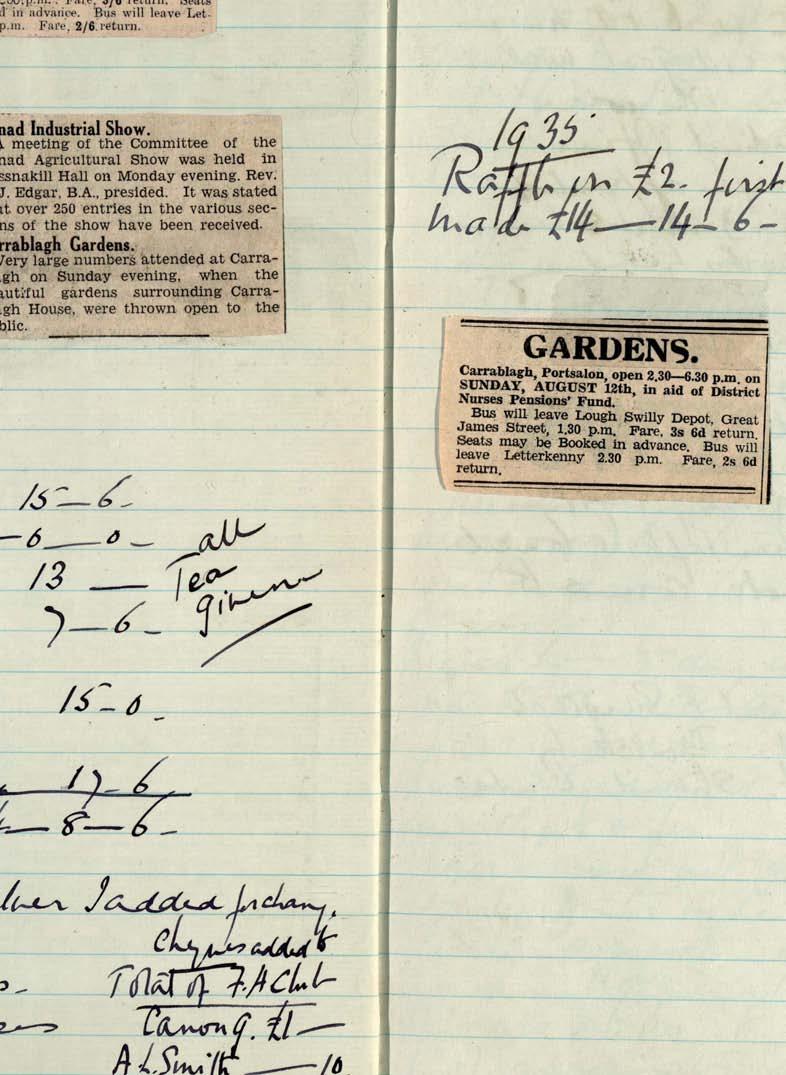 p.m. Fare, 3/6 return. Seats
d in advance. Bus will leave Let-
p.m. Fare, 2/6 return.
nad Industrial Show.
A meeting of the Committee of the
nad Agricultural Show was held in
ssnakill Hall on Monday evening. Rev.
J. Edgar, B.A., presided. It was stated
at over 250 entries in the various sec-
ns of the show have been received.
rrablagh Gardens.
Very large numbers attended at Carra-
gh on Sunday evening, when the
autiful gardens surrounding Carra-
gh House, were thrown open to the
blic.
15—6-
-6—0- all
13 — Tea
7—6- given
15-0-
17-6
8—6-
I added for
cheques added to
Total of F.A Club
Canon G. £1—
A. L. Smith — 10
1935
£2. first
made £14—14-6-
GARDENS.
Carrablagh, Portsalon, open 2.30—6.30 p.m. on
SUNDAY, AUGUST 12th, in aid of District
Nurses Pensions' Fund.
Bus will leave Lough Swilly Depot, Great
James Street, 1.30 p.m. Fare, 3s 6d return.
Seats may be Booked in advance. Bus will
leave Letterkenny 2.30 p.m. Fare, 2s 6d
return.